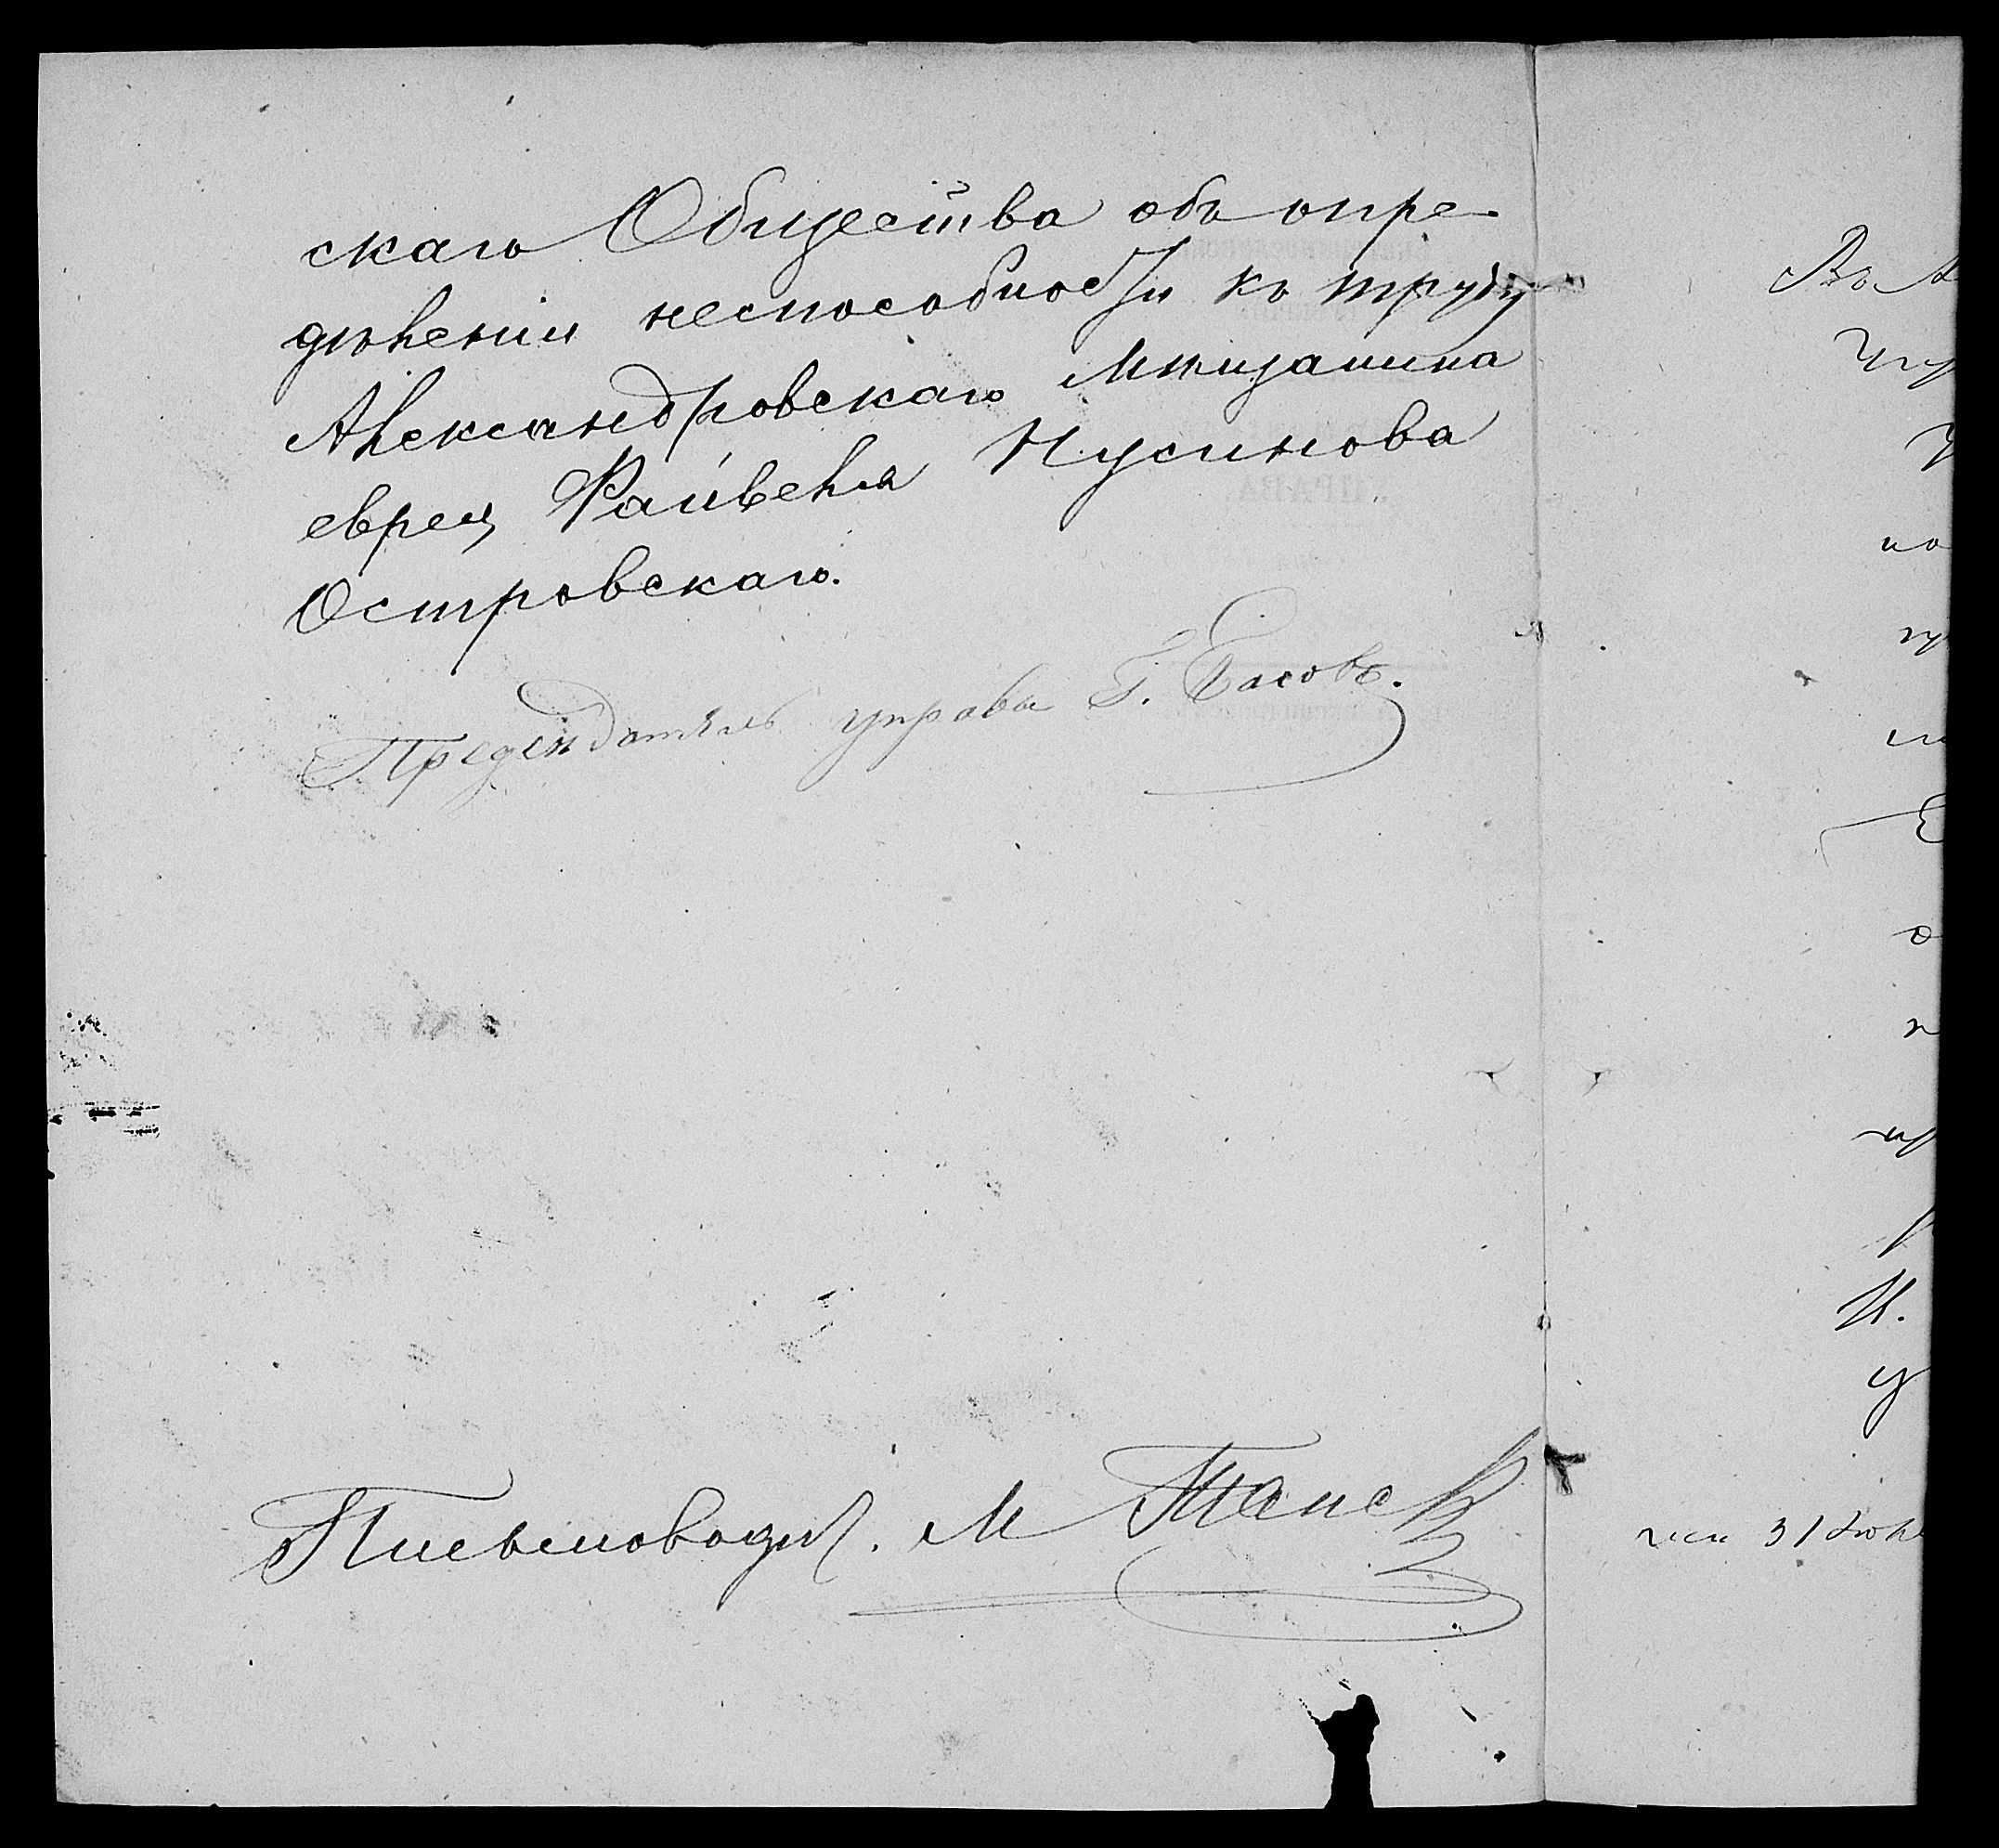 скаго Общества объ опре-
дѣленіи неспособности къ труду
Александровскаго мѣщанина
еврея Файвеля Нусинова
Островскаго.
Предсѣдатель управы Г. Басовъ.
Письмоводит. М
Въ
31 Іюл